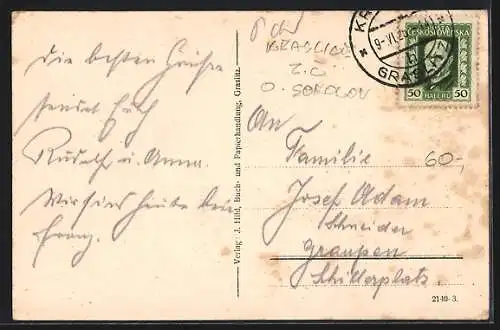 Die besten Grüsse
sendet Euch
Rudolf u. Anna.
Wir sind heute bei
Franz.
Verlag: J. Hild, Buch- und Papierhandlung, Graslitz.
KRASLICE
Z. C
O. SOKOLOV
KR
9-VI.2
GRASLITZ
ČESKOSLOVENSKÁ
50 HALÉŘŮ 50
60,-
An
Familie
Josef Adam
Schneider
Graupen
Schillerplatz.
2140-3.